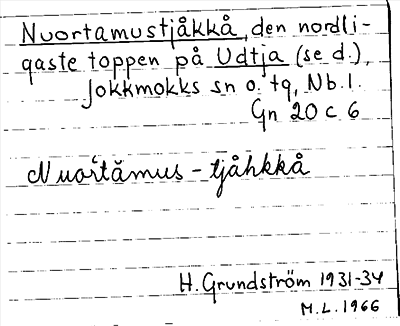 Nuortamustjåkkå, den nordli-
gaste toppen på Udtja (se d.),
Jokkmokks sn o. tg, Nb. l.
Gn 20 c 6
Nuorʻtămus-tjåhkkå
H. Grundström 1931-34
M.L. 1966